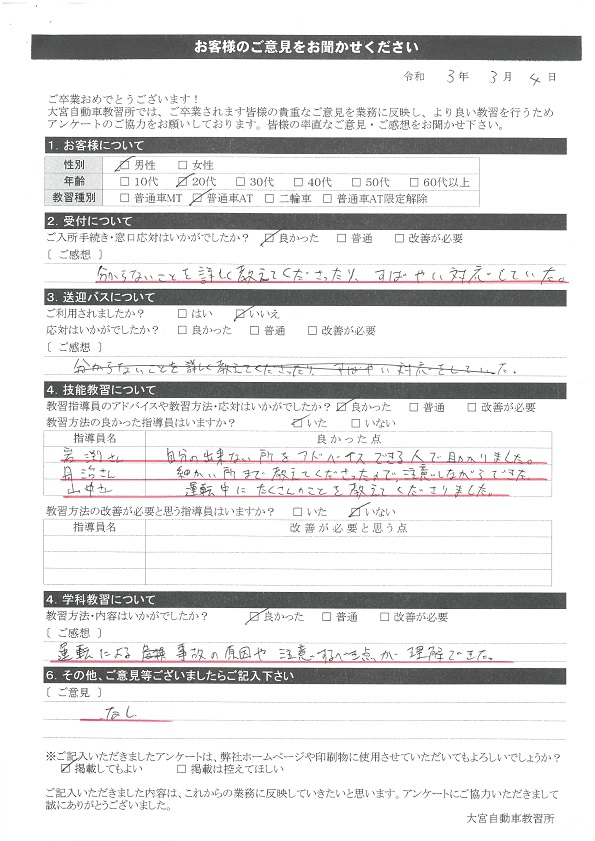 お客様のご意見をお聞かせください
令和 3年 3月 4日
ご卒業おめでとうございます！
大宮自動車教習所では、ご卒業されます皆様の貴重なご意見を業務に反映し、より良い教習を行うため
アンケートのご協力をお願いしております。皆様の率直なご意見・ご感想をお聞かせ下さい。
1. お客様について
性別 ☑男性 □女性
年齢 □10代 ☑20代 □30代 □40代 □50代 □60代以上
教習種別 □普通車MT ☑普通車AT □二輪車 □普通車AT限定解除
2. 受付について
ご入所手続き・窓口応対はいかがでしたか？ ☑良かった □普通 □改善が必要
〔 ご感想 〕
分からないことを詳しく教えてくださったり、すばやい対応をしていた。
3. 送迎バスについて
ご利用されましたか？ □はい ☑いいえ
応対はいかがでしたか？ □良かった □普通 □改善が必要
〔 ご感想 〕
分からないことを詳しく教えてくださったり、すばやい対応をしていた。
4. 技能教習について
教習指導員のアドバイスや教習方法・応対はいかがでしたか？ ☑良かった □普通 □改善が必要
教習方法の良かった指導員はいますか？ ☑いた □いない
指導員名 良かった点
岩渕さん 自分の出来ない所をアドバイスできる人で助かりました。
丹治さん 細かい所まで教えてくださったので、注意しながらできた。
山中さん 運転中にたくさんのことを教えてくださりました。
教習方法の改善が必要と思う指導員はいますか？ □いた ☑いない
指導員名 改善が必要と思う点
4. 学科教習について
教習方法・内容はいかがでしたか？ ☑良かった □普通 □改善が必要
〔 ご感想 〕
運転による 事故の原因や注意するべき点が理解できた。
6. その他、ご意見等ございましたらご記入下さい
〔 ご意見 〕
なし
※ご記入いただきましたアンケートは、弊社ホームページや印刷物に使用させていただいてもよろしいでしょうか？
☑掲載してもよい □掲載は控えてほしい
ご記入いただきました内容は、これからの業務に反映していきたいと思います。アンケートにご協力いただきまして
誠にありがとうございました。
大宮自動車教習所